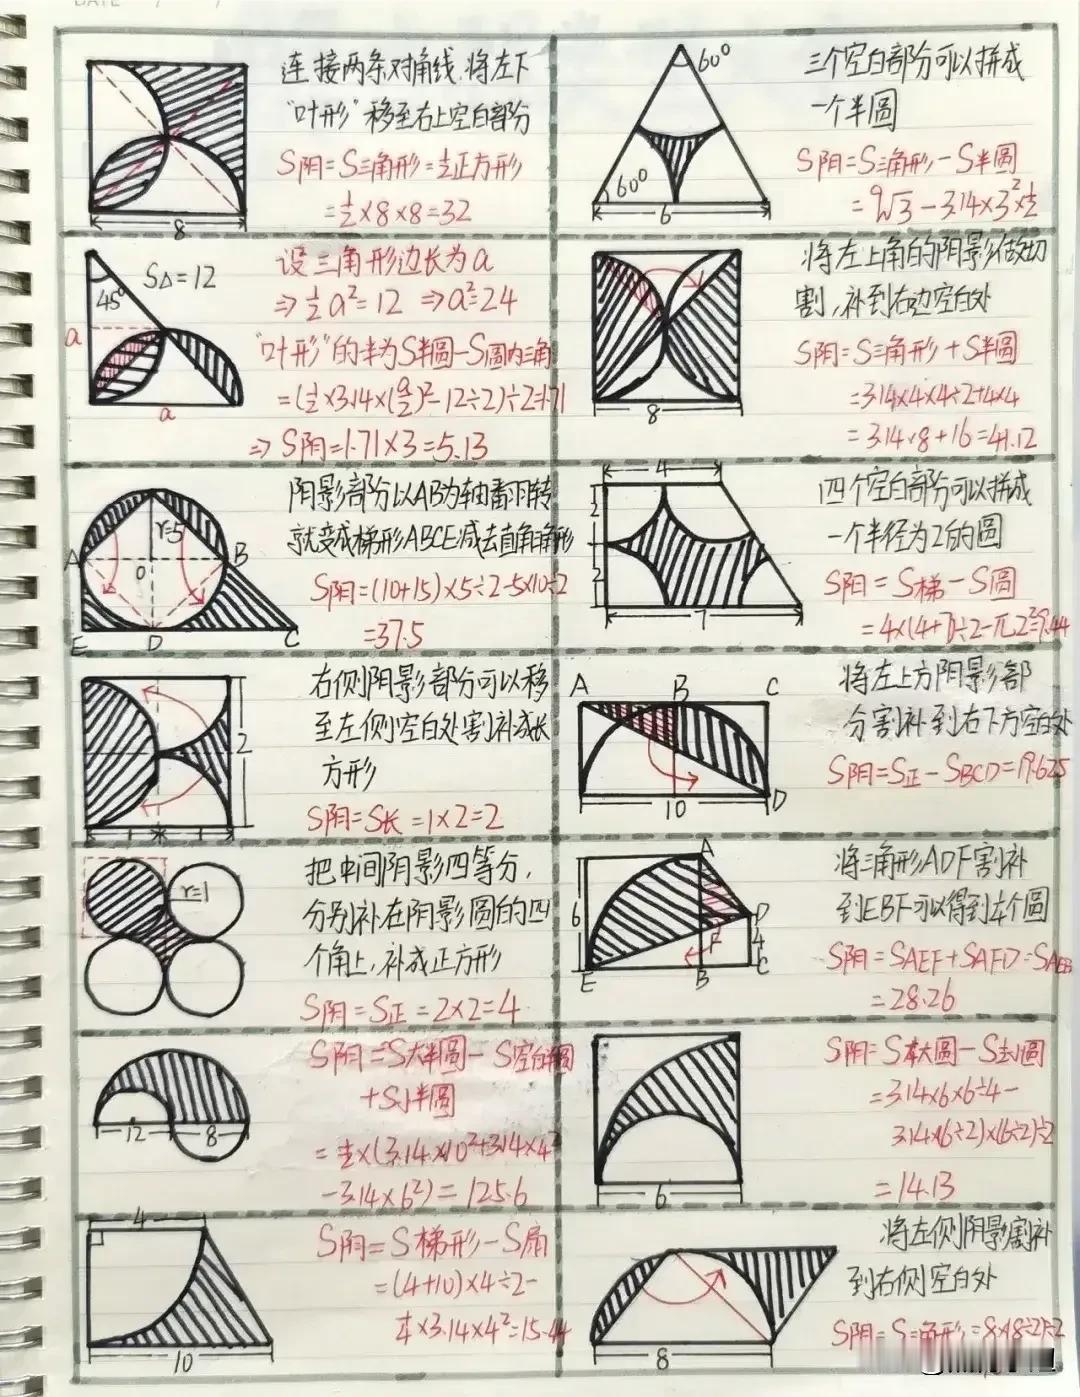 DATE
连接两条对角线.将左下
"叶形"移至右上空白部分
S阴=S三角形=½正方形
=½×8×8=32
8
60°
60°
6
三个空白部分可以拼成
一个半圆
S阴=S三角形-S半圆
=9√3-3.14×3²×½
45°
S△=12
a
a
设三角形边长为a
⇒½a²=12 ⇒a²=24
"叶形"的半为S半圆-S圆内三角
=(½×3.14×(a/2)²-12÷2)÷2=1.71
⇒S阴=1.71×3=5.13
8
将左上角的阴影做切
割,补到右边空白处
S阴=S三角形+S半圆
=3.14×4×4÷2+4×4
=3.14×8+16=41.12
A
r=5
B
O
E
D
C
阴影部分以AB为轴翻下转
就变成梯形ABCE减去直角三角形
S阴=(10+15)×5÷2-5×10÷2
=37.5
4
2
2
7
四个空白部分可以拼成
一个半径为2的圆
S阴=S梯-S圆
=4×(4+7)÷2-π.2²=9.44
2
1
1
右侧阴影部分可以移
至左侧空白处割补成长
方形
S阴=S长=1×2=2
A
B
C
10
D
将左上方阴影部
分割补到右下方空白处
S阴=S正-SBCD=19.625
r=1
把中间阴影四等分,
分别补在阴影圆的四
个角上,补成正方形
S阴=S正=2×2=4
A
6
D
F
4
E
B
C
将三角形ADF割补
到EBF可以得到¼个圆
S阴=SAEF+SAFD=SAEB
=28.26
12
8
S阴=S大半圆-S空白半圆
+S小半圆
=½×(3.14×10²+3.14×4²
-3.14×6²)=125.6
6
S阴=S¼大圆-S½小圆
=3.14×6×6÷4-
3.14×(6÷2)×(6÷2)÷2
=14.13
4
10
S阴=S梯形-S扇
=(4+10)×4÷2-
¼×3.14×4²=15.44
8
将左侧阴影割补
到右侧空白处
S阴=S三角形=8×(8÷2)÷2